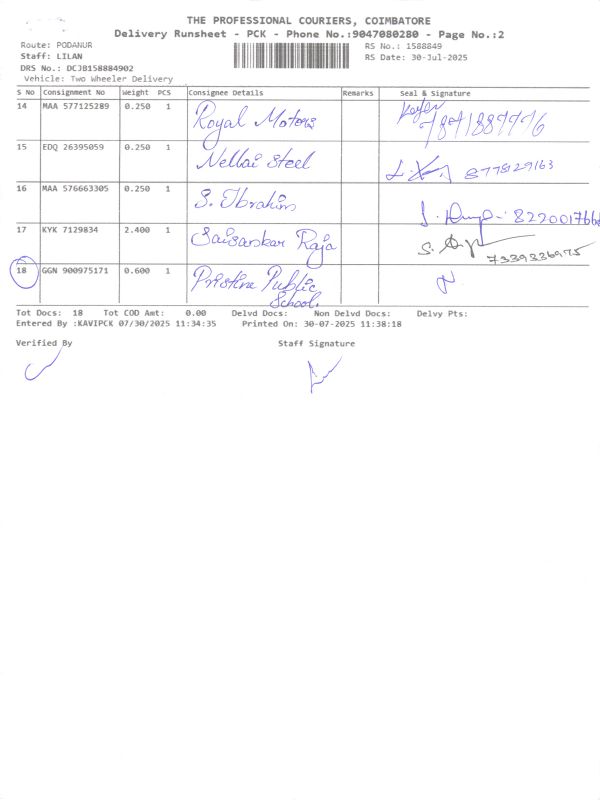 THE PROFESSIONAL COURIERS, COIMBATORE
Delivery Runsheet - PCK - Phone No.:9047080280 - Page No.:2
Route: PODANUR RS No.: 1588849
Staff: LILAN RS Date: 30-Jul-2025
DRS No.: DCJB158884902
Vehicle: Two Wheeler Delivery
S No Consignment No Weight PCS Consignee Details Remarks Seal & Signature
14 MAA 577125289 0.250 1 Royal Motors
15 EDQ 26395059 0.250 1 Nellai Steel 8778129163
16 MAA 576663305 0.250 1 S. Ibrahim
17 KYK 7129834 2.400 1 Raja 7339326975
18 GGN 900975171 0.600 1 Public
School.
Tot Docs: 18 Tot COD Amt: 0.00 Delvd Docs: Non Delvd Docs: Delvy Pts:
Entered By :KAVIPCK 07/30/2025 11:34:35 Printed On: 30-07-2025 11:38:18
Verified By Staff Signature